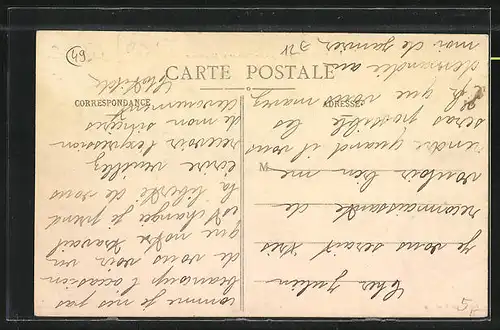 49
CARTE POSTALE
CORRESPONDANCE
ADRESSE
M
Cher Julien
je vous serait très
reconnaissante de
vouloir bien me
rendre quand il vous
seras possible les
que vous mavez
demandée au
moi de janvier,
comme je nes pas
beaucoup l'occasion
de vous voir vu
que notre travail
est changé je prend
la liberté de vous
ecrire veuillez
recevoir l'expression
de mon sincères
devouement
Clotilde
5